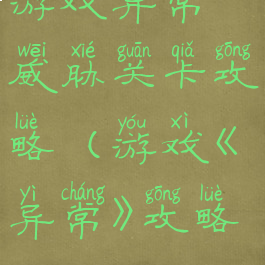 游戏异常
wēi xié guān qiǎ gōng
威胁关卡攻
lüè yóu xì
略（游戏《
yì cháng gōng lüè
异常》攻略